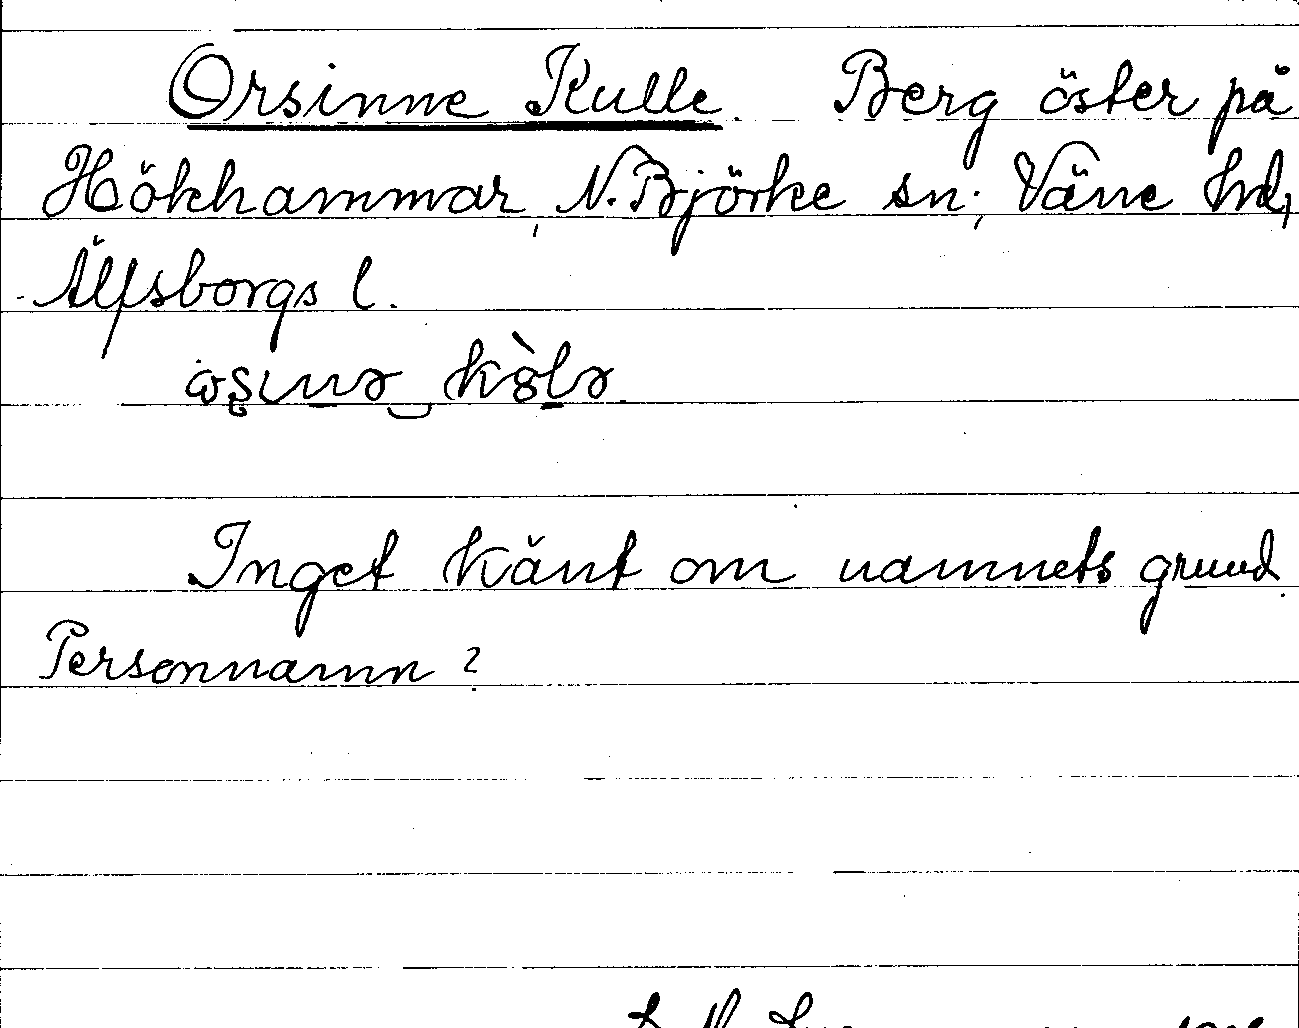 Orsinne Kulle. Berg öster på
Hökhammar, N. Björke sn; Väne hd,
Älfsborgs l.
Inget känt om namnets grund.
Personnamn?